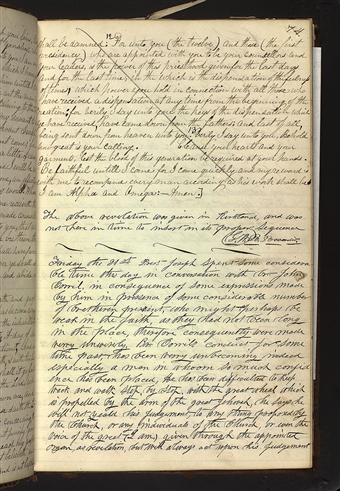 74
12 d
shall be damned; For unto you (the twelve) and those (the first
presidency) who are appointed with you to be your counsellors and
your leaders, is the power of this priesthood given for the last days
and for the last time, in the which is the dispensation of the fulness
of times, which power you hold in connection with all those who
have received a dispensation at any time from the beginning of the
creation; for verily I say unto you the keys of the dispensation which
ye have received, have come down from the fathers and last of all,
being sent down from heaven unto you. Verily I say unto you, Behold
how great is your calling. Cleanse your hearts and your
garments, lest the blood of this generation be required at your hands.
Be faithful until I come for I come quickly and my reward is
with me to recompence every man according as his work shall be
I am Alpha and Omega:— Amen:
The above revelation was given in Kirtland, and was
not here in time to insert in its proper sequence
Tuesday the 21st Pres. Joseph spent some considera
ble time this day in conversation with Br John
Corril, in consequence of some expressions made
by him in presence of some considerable number
of brethren present, who might perhaps be
weak in the faith, as they had not been long
in the place, therefore consequently were made
very unwisely, Br. Corrils conduct for some
time past, has been very unbecoming indeed
especially a man in whoom so much confid
ence has been placed, He has been difficulted to keep
track and walk step by step, with the great wheel which
is propelled by the arm of the great Jehovah, He says he
will not yeald his Judgement, to any thing proposed by
the Church, or any individuals of the Church, or even the
voice of the great (I am,) given through the appointed
organ, as revelation, but will always act upon his Judgement